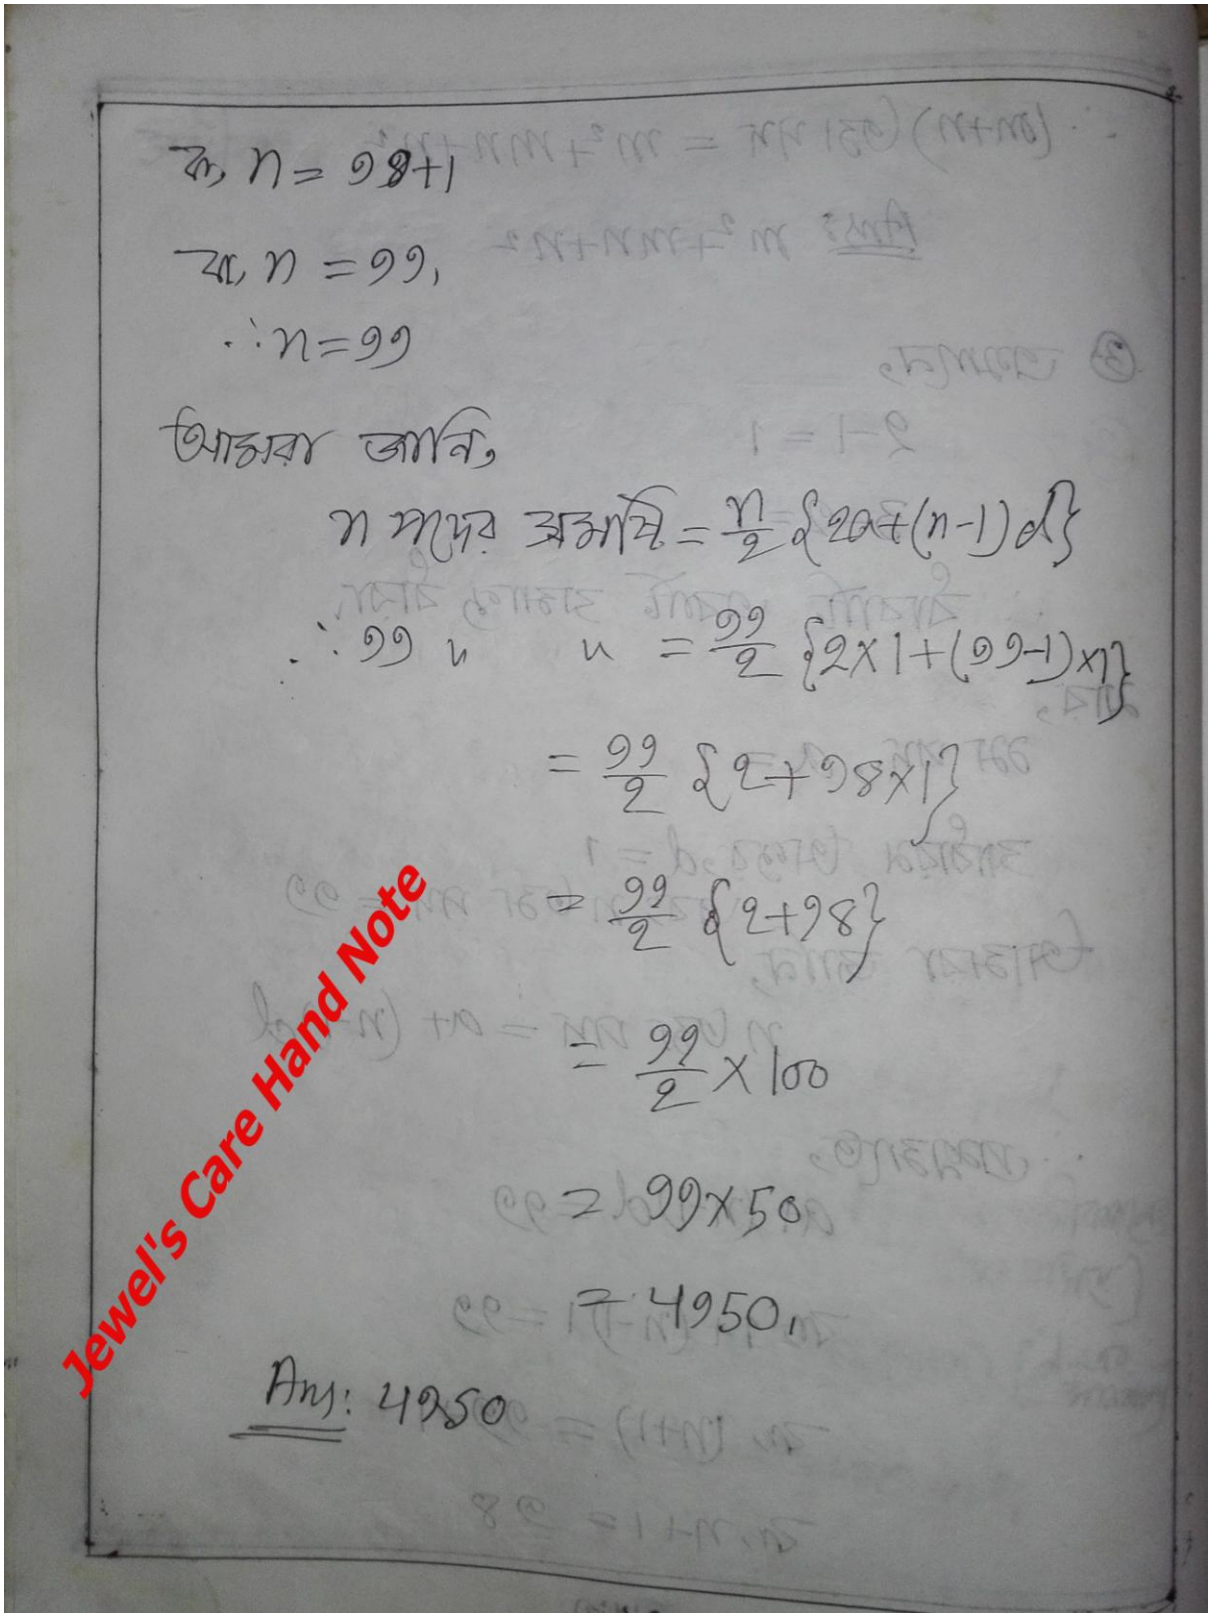 বা, n = 98+1
বা, n = 99,
∴ n = 99
আমরা জানি,
n পদের সমষ্টি = n/2 {2a+(n-1)d}
∴ 99 " " = 99/2 {2×1+(99-1)×1}
= 99/2 {2+98×1}
= 99/2 {2+98}
= 99/2 × 100
= 99×50
= 4950,
Ans: 4950
Jewel's Care Hand Note